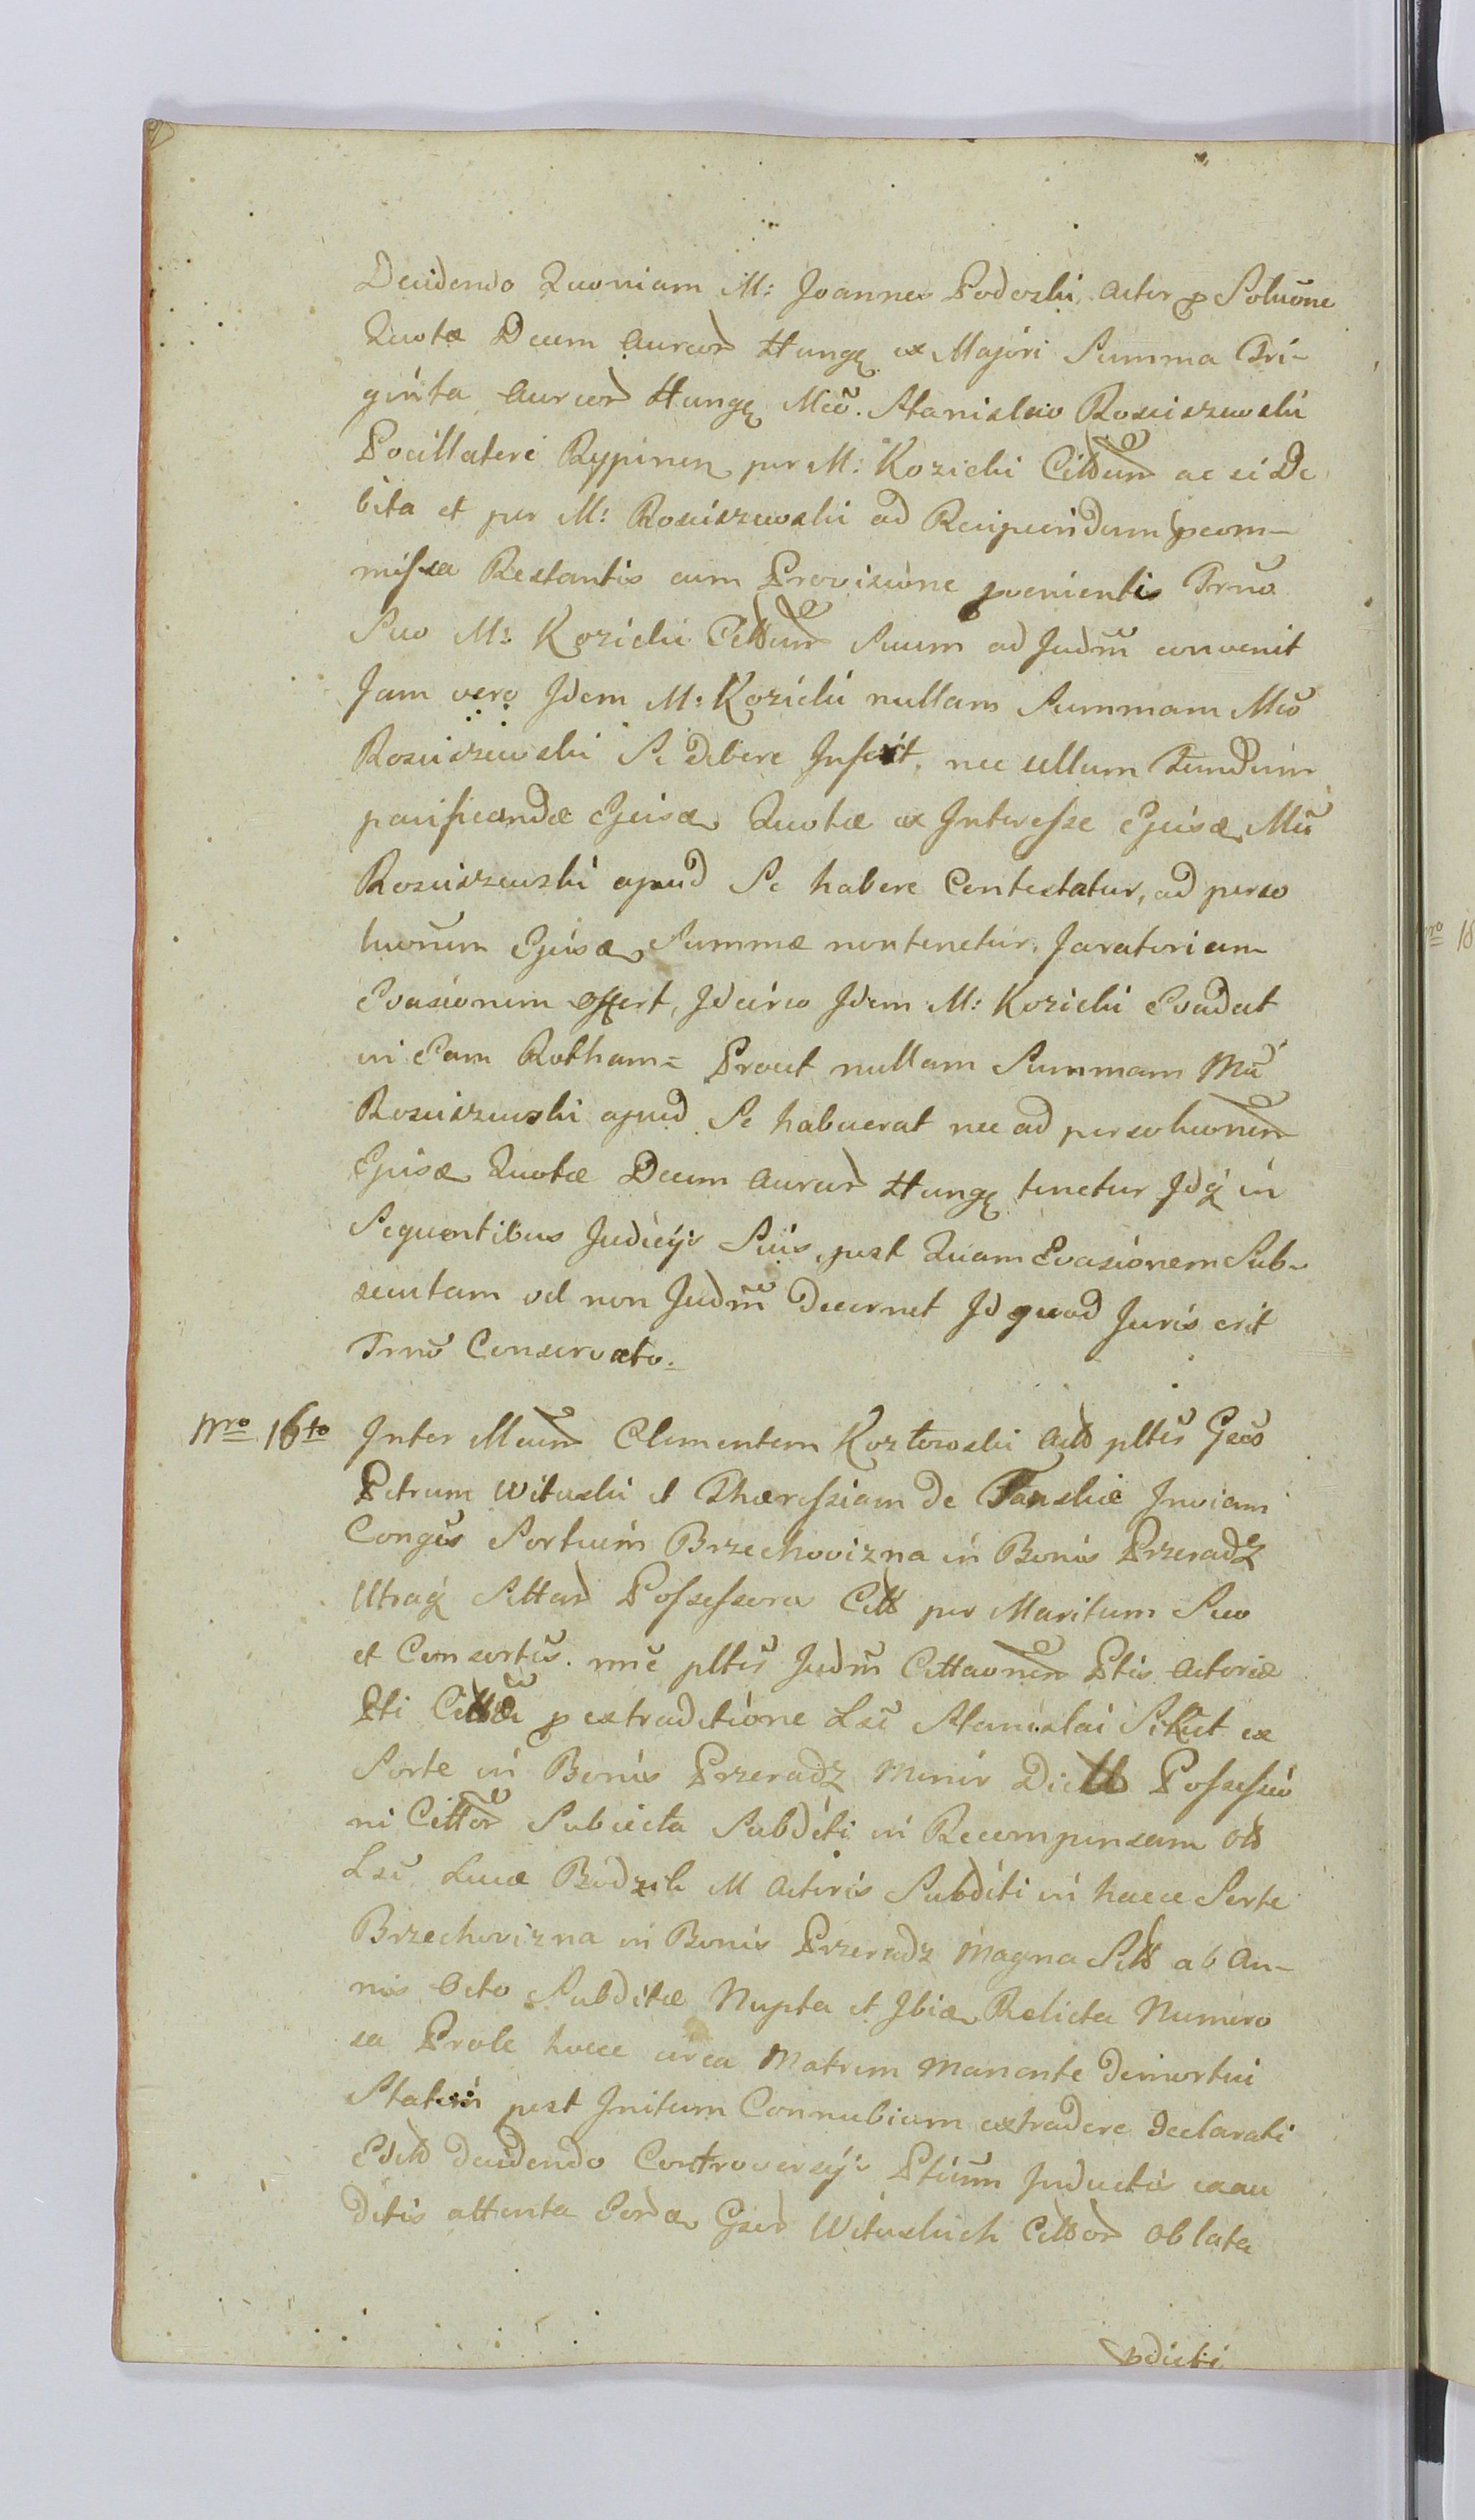 Decidendo Quoniam M: Joannes Podoski Actor p Soluõne
Quotæ Decem Aureor Hung ex Majori Summa Tri-
ginta Aureor Hung Mco. Stanislao Rosciszewski
Pocillatori Rypinen per M: Kozicki Cittum ac ei De
bita et per M: Rosciszewski ad Recipiendum pcom-
missa Restantis cum Provisione pvenientis Trno
Suo M: Kozicki Cittum Suum ad Judm convenit
Jam vero Idem M: Kozicki nullam Summam Mco
Rosciszewski Se debere Inserit, nec ullum Fundum
pacificandæ Ejusd Quotæ ex Interesse Ejusd Mci
Rosciszewski apud Se habere Contestatur, ad perso
luonem Ejusd Summæ non tenetur. Juratoriam
Evasionem offert, Idcirco Idem M: Kozicki Evadat
in Eam Rotham = Prout nullam Summam Mci
Rosciszewski apud Se habuerat nec ad persoluonem
Ejusd Quotæ Decem Aureor Hung tenetur Idq in
Sequentibus Judicijs Suis, post Quam Evasionem Sub-
secutam vel non Judm Decernet Id quod Juris erit
Trno Conservato.
Nro 16to Inter Mcum Clementem Kozłowski Act pltis Gsos
Petrum Wituski et Theressiam de Tanskie Inviam
Congis Sortium Brzechovizna in Bonis Przeradz
Utraq Sittar Possessores Citt per Maritum Suo
et Consortis. nne pltis Judm Cittaonem Ptis Actoriæ
Pti Cittæ p extraditione Lsi Stanislai Situt ex
Sorte in Bonis Przeradz Minor Dictt Possessio
ni Cittor Subiecta Subditi in Recompensam Ott
Lsi Lucæ Bodzik M Actoris Subditi in hacce Sorte
Brzechovizna in Bonis Przeradz Magna Sitt ab An-
nis Octo Subditæ Nupta et Ibid Relicta Numero
sa Prole hocce circa Matrem Manente Demortui
Statim post Initum Connubium extradere Declarati
Edctt Decidendo Controversijs Ptium Inductis exau
ditis attenta Eord Gsor Wituskich Cittor Oblata
pdicti